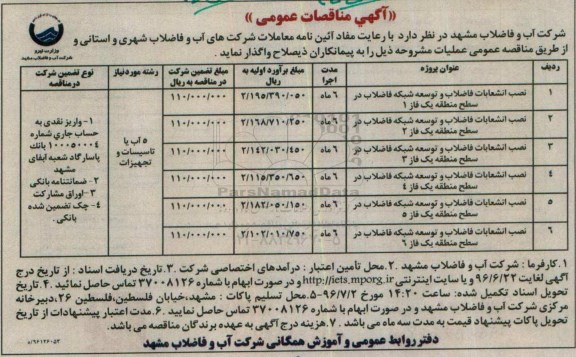 «آگهي مناقصات عمومی »
شرکت آب و فاضلاب مشهد در نظر دارد با رعایت مفاد آئین نامه معاملات شرکت های آب و فاضلاب شهری و استانی و
از طریق مناقصه عمومی عملیات مشروحه ذیل را به پیمانکاران ذیصلاح واگذار نماید .
وزارت نیرو
شرکت آب و فاضلاب مشهد
ردیف عنوان پروژه مدت اجرا مبلغ برآورد اولیه به ریال مبلغ تضمین شرکت در مناقصه به ریال رشته موردنیاز نوع تضمین شرکت درمناقصه
۱ نصب انشعابات فاضلاب و توسعه شبکه فاضلاب در سطح منطقه یک فاز ۱ ۶ ماه ۲/۱۹۵/۳۹۰/۰۵۰ ۱۱۰/۰۰۰/۰۰۰
۲ نصب انشعابات فاضلاب و توسعه شبکه فاضلاب در سطح منطقه یک فاز ۲ ۶ ماه ۲/۱۶۸/۷۱۰/۲۵۰ ۱۱۰/۰۰۰/۰۰۰
۳ نصب انشعابات فاضلاب و توسعه شبکه فاضلاب در سطح منطقه یک فاز ۳ ۶ ماه ۲/۱۴۲/۰۳۰/۴۵۰ ۱۱۰/۰۰۰/۰۰۰
۴ نصب انشعابات فاضلاب و توسعه شبکه فاضلاب در سطح منطقه یک فاز ۴ ۶ ماه ۲/۱۱۵/۳۵۰/۶۵۰ ۱۱۰/۰۰۰/۰۰۰
۵ نصب انشعابات فاضلاب و توسعه شبکه فاضلاب در سطح منطقه یک فاز ۵ ۶ ماه ۲/۱۸۲/۰۵۰/۱۵۰ ۱۱۰/۰۰۰/۰۰۰
۶ نصب انشعابات فاضلاب و توسعه شبکه فاضلاب در سطح منطقه یک فاز ۶ ۶ ماه ۲/۱۰۲/۰۱۰/۷۵۰ ۱۱۰/۰۰۰/۰۰۰
۵ آب یا
تاسیسات و
تجهیزات
۱- واریز نقدی به
حساب جاري شماره
۱۰۰۰۵۰۰۰۴ بانک
پاسارگاد شعبه ابفای
مشهد
۲- ضمانتنامه بانکی
۳-اوراق مشارکت
۴- چک تضمین شده
بانکی.
ParsNamadData
۱. کارفرما : شرکت آب و فاضلاب مشهد .۲.محل تأمین اعتبار : درآمدهای اختصاصی شرکت .۳.تاریخ دریافت اسناد : از تاریخ درج
آگهی لغایت ۹۶/۶/۲۳ و یا سایت اینترنتی http://iets.mporg.ir و در صورت ابهام با شماره ۳۷۰۰۸۱۲۶ تماس حاصل نمائید .۴.تاریخ
تحویل اسناد تکمیل شده: ساعت ۱۴:۳۰ مورخ ۹۶/۷/۲-۵.محل تسلیم پاکات : مشهد،خیابان فلسطین،فلسطین ۲۶،دبیرخانه
مرکزی شرکت آب و فاضلاب مشهد و در صورت ابهام با شماره ۳۷۰۰۸۱۲۶ تماس حاصل نمایید .۶.مدت اعتبار پیشنهادات از تاریخ
تحویل پاکات پیشنهاد قیمت به مدت سه ماه می باشد .۷.هزینه درج آگهی به عهده برندگان مناقصه می باشد.
دفتر روابط عمومی و آموزش همگانی شرکت آب و فاضلاب مشهد